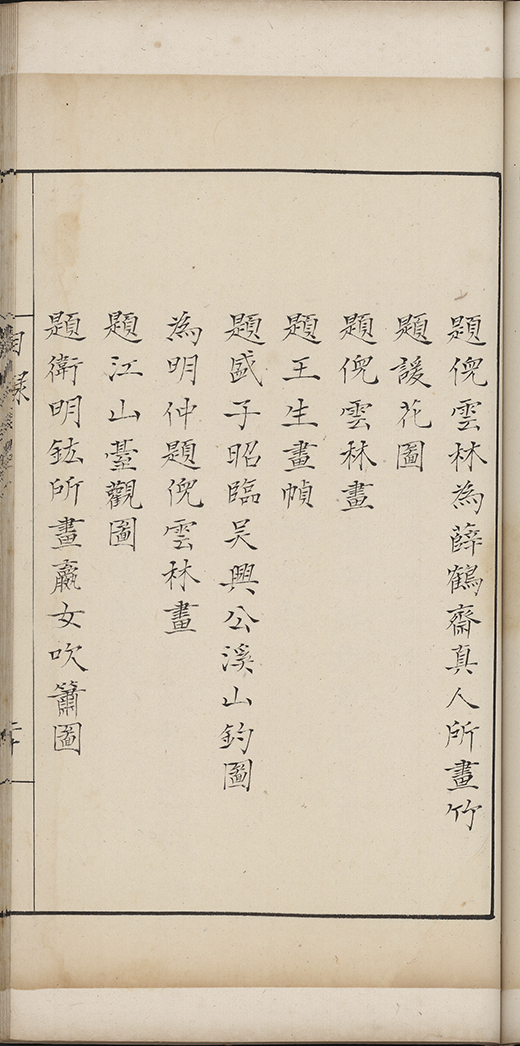 題倪雲林為薛鶴齋真人所畫竹
題諼花圖
題倪雲林畫
題王生畫幀
題盛子昭臨吴興公溪山釣圖
為明仲題倪雲林畫
題江山臺觀圖
題衛明鉉所畫嬴女吹簫圖
目錄
二十